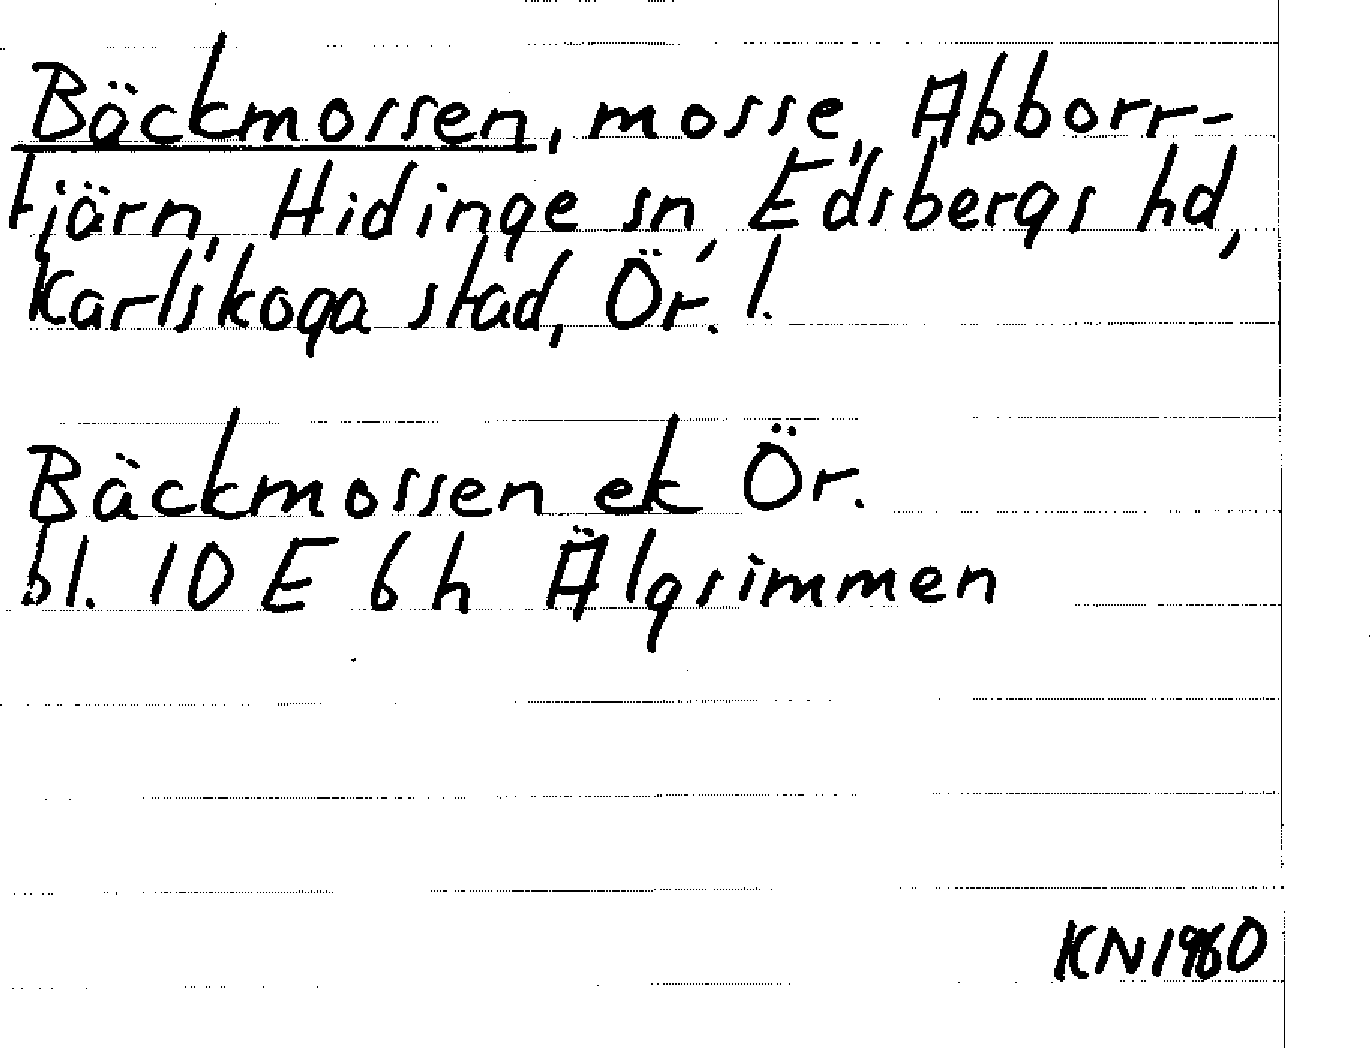 Bäckmossen, mosse, Abborr-
tjärn, Hidinge sn, Edsbergs hd,
Karlskoga stad, Ör. l.
Bäckmossen ek Ör.
bl. 10 E 6 h Älgsimmen
KN1980